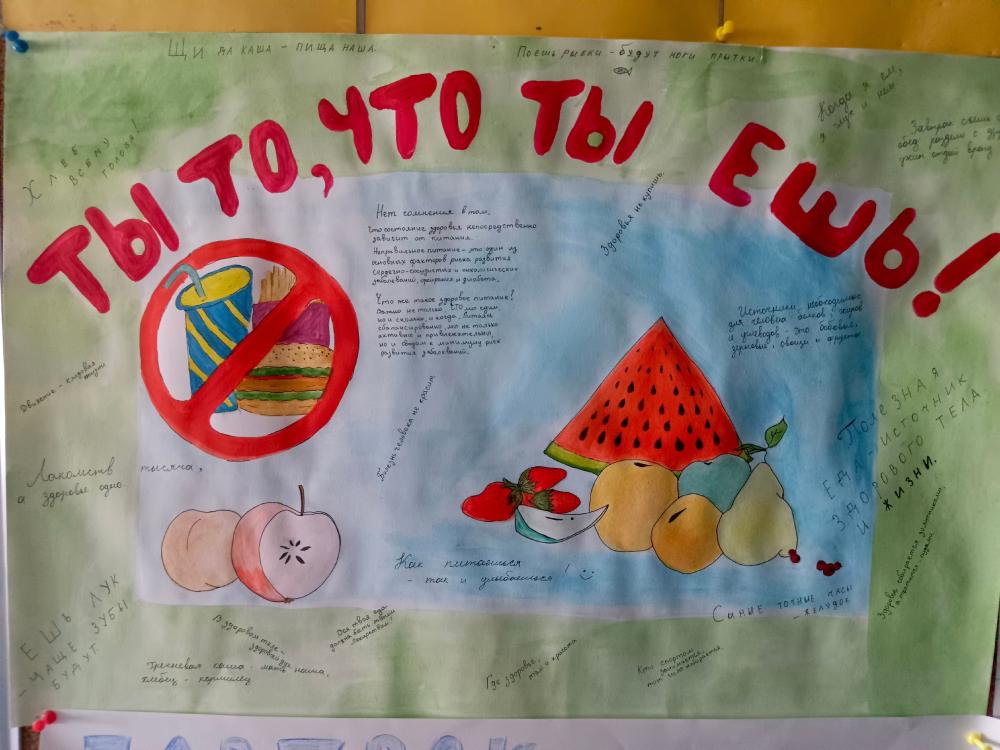 Щи да каша - пища наша.
Поешь рыбки - будут ноги прытки.
ТЫ ТО, ЧТО ТЫ ЕШЬ!
Хлеб
всему
голова!
Когда я ем,
я глух и нем
Завтрак съешь с
обед раздели с
ужин отдай врагу
Нет сомнения в том,
что состояние здоровья непосредственно
зависит от питания.
Неправильное питание - это один из
основных факторов риска развития
сердечно-сосудистых и онкологических
заболеваний, ожирения и диабета.
Что же такое здоровое питание?
Важно не только, ЧТО мы едим,
но и сколько, и когда. Питание
сбалансированно, мы не только
активны и привлекательны,
но и сводим к минимуму риск
развития заболеваний.
Здоровья не купишь.
Источники, необходимые
для человека белков, жиров
и углеводов - это бобовые,
зерновые, овощи и фрукты
Движение - кладовая
жизни
Болезнь человека не красит
Полезная
еда - источник
здорового тела
и жизни.
Лакомств тысяча,
а здоровье одно
Как питаешься
- так и улыбаешься!
Здоровье собирается золотниками,
а тратится пудами
Самые точные часы
- желудок
Ешь лук
- чаще
будут зубы
В здоровом теле -
здоровый дух
Вся твоя еда
должна быть твоим
лекарством!
Гречневая каша - матка наша,
хлебец - кормилец
Где здоровье,
там и красота
Кто спортом
занимается,
тот силы набирается.